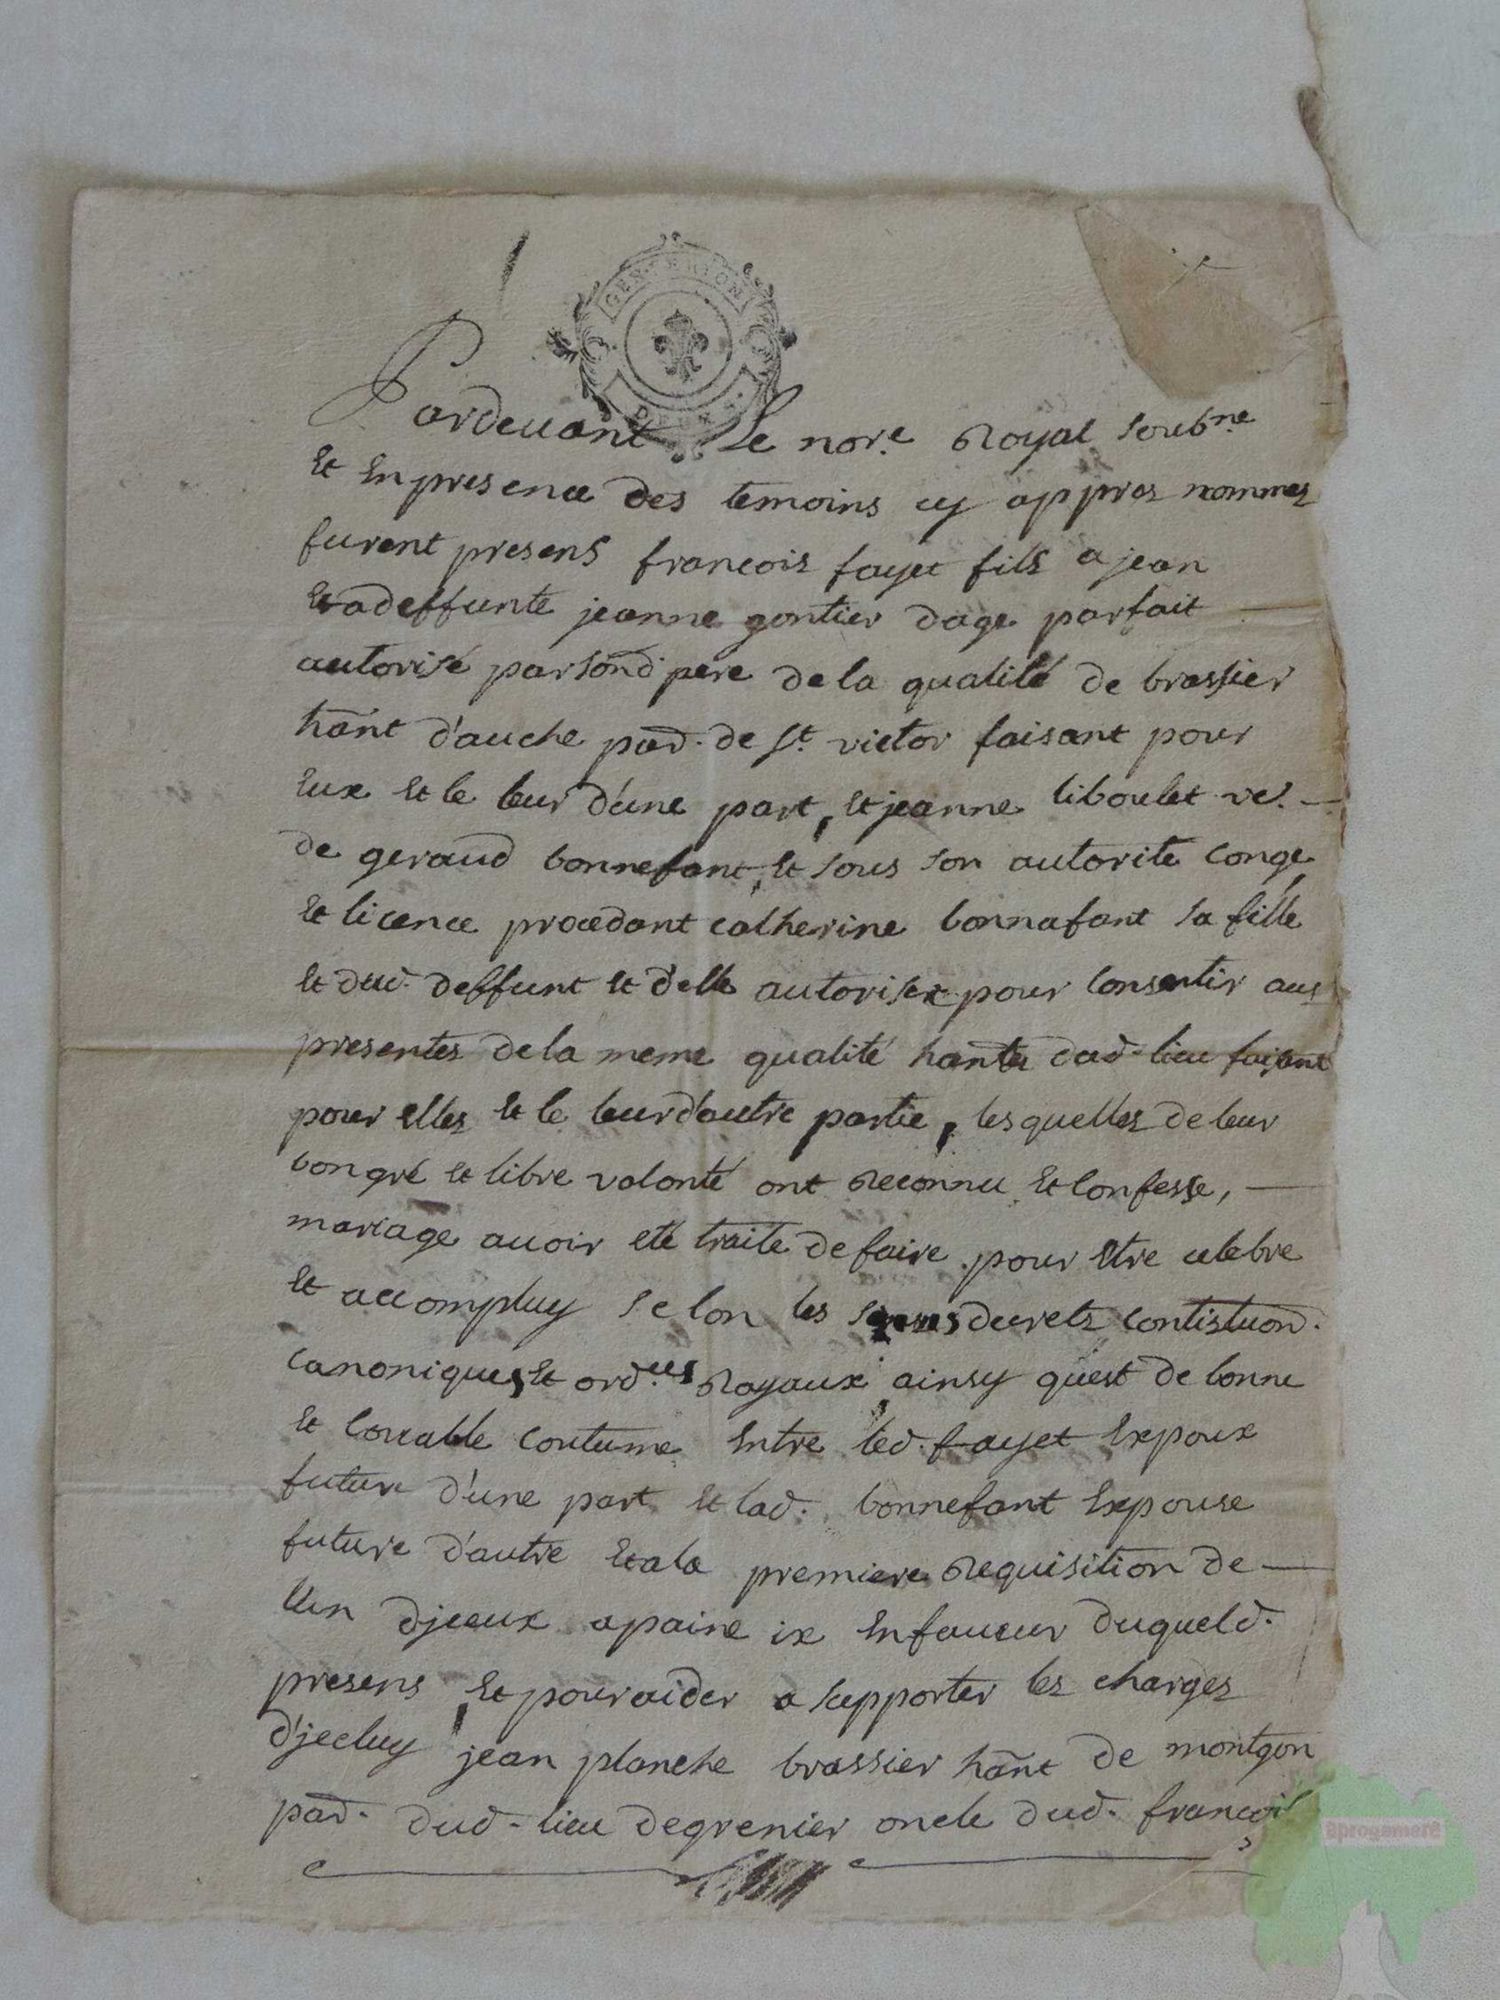 GEN. RION
DEUX S.
Pardeuant Le nore. Royal soubne
et En presence des temoins cy appres nommes
furent presens francois fayet fils a jean
et a deffunte jeanne gontier dage parfait
autorisé par sond pere de la qualité de brassier
hant d'auche par. de St. victor faisant pour
Eux et le leur d'une part, et jeanne liboulet ve. -
de geraud bonnefant, et sous son autorite conge
et licence procedant catherine bonnafant sa fille
et dud. deffunt et d'elle autorisée pour consentir aus
presentes de la meme qualité hante dud. lieu faisant
pour elles et le leur d'autre partie, lesquelles de leur
bon gré et libre volonté ont Reconnu et confesse, —
mariage auoir eté traite de faire pour etre celebre
et accompluy selon les decrets contistuon.
canoniques et ord.ces Royaux ainsy qu'est de bonne
et louable coutume Entre led. fayet Expoux
futur d'une part et lad. bonnefant Expouse
future d'autre et a la premiere Requisition de —
lun djceux a paine ix En faueur duquel d.
presens et pour aider a supporter les charges
d'jecluy jean planche brassier hant de montgon
par. dud. lieu de grenier oncle dud. françois
Aprogemere